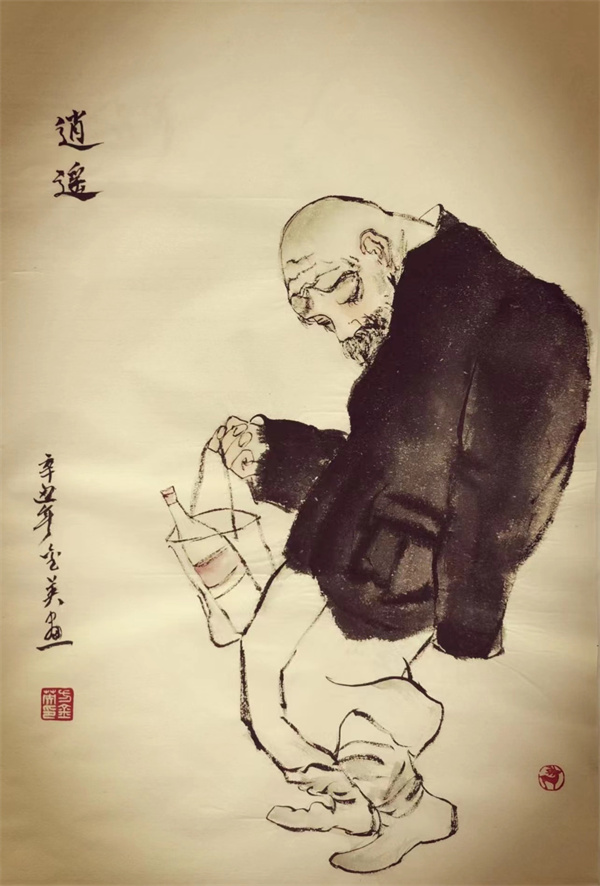 逍遥
辛丑年金英画